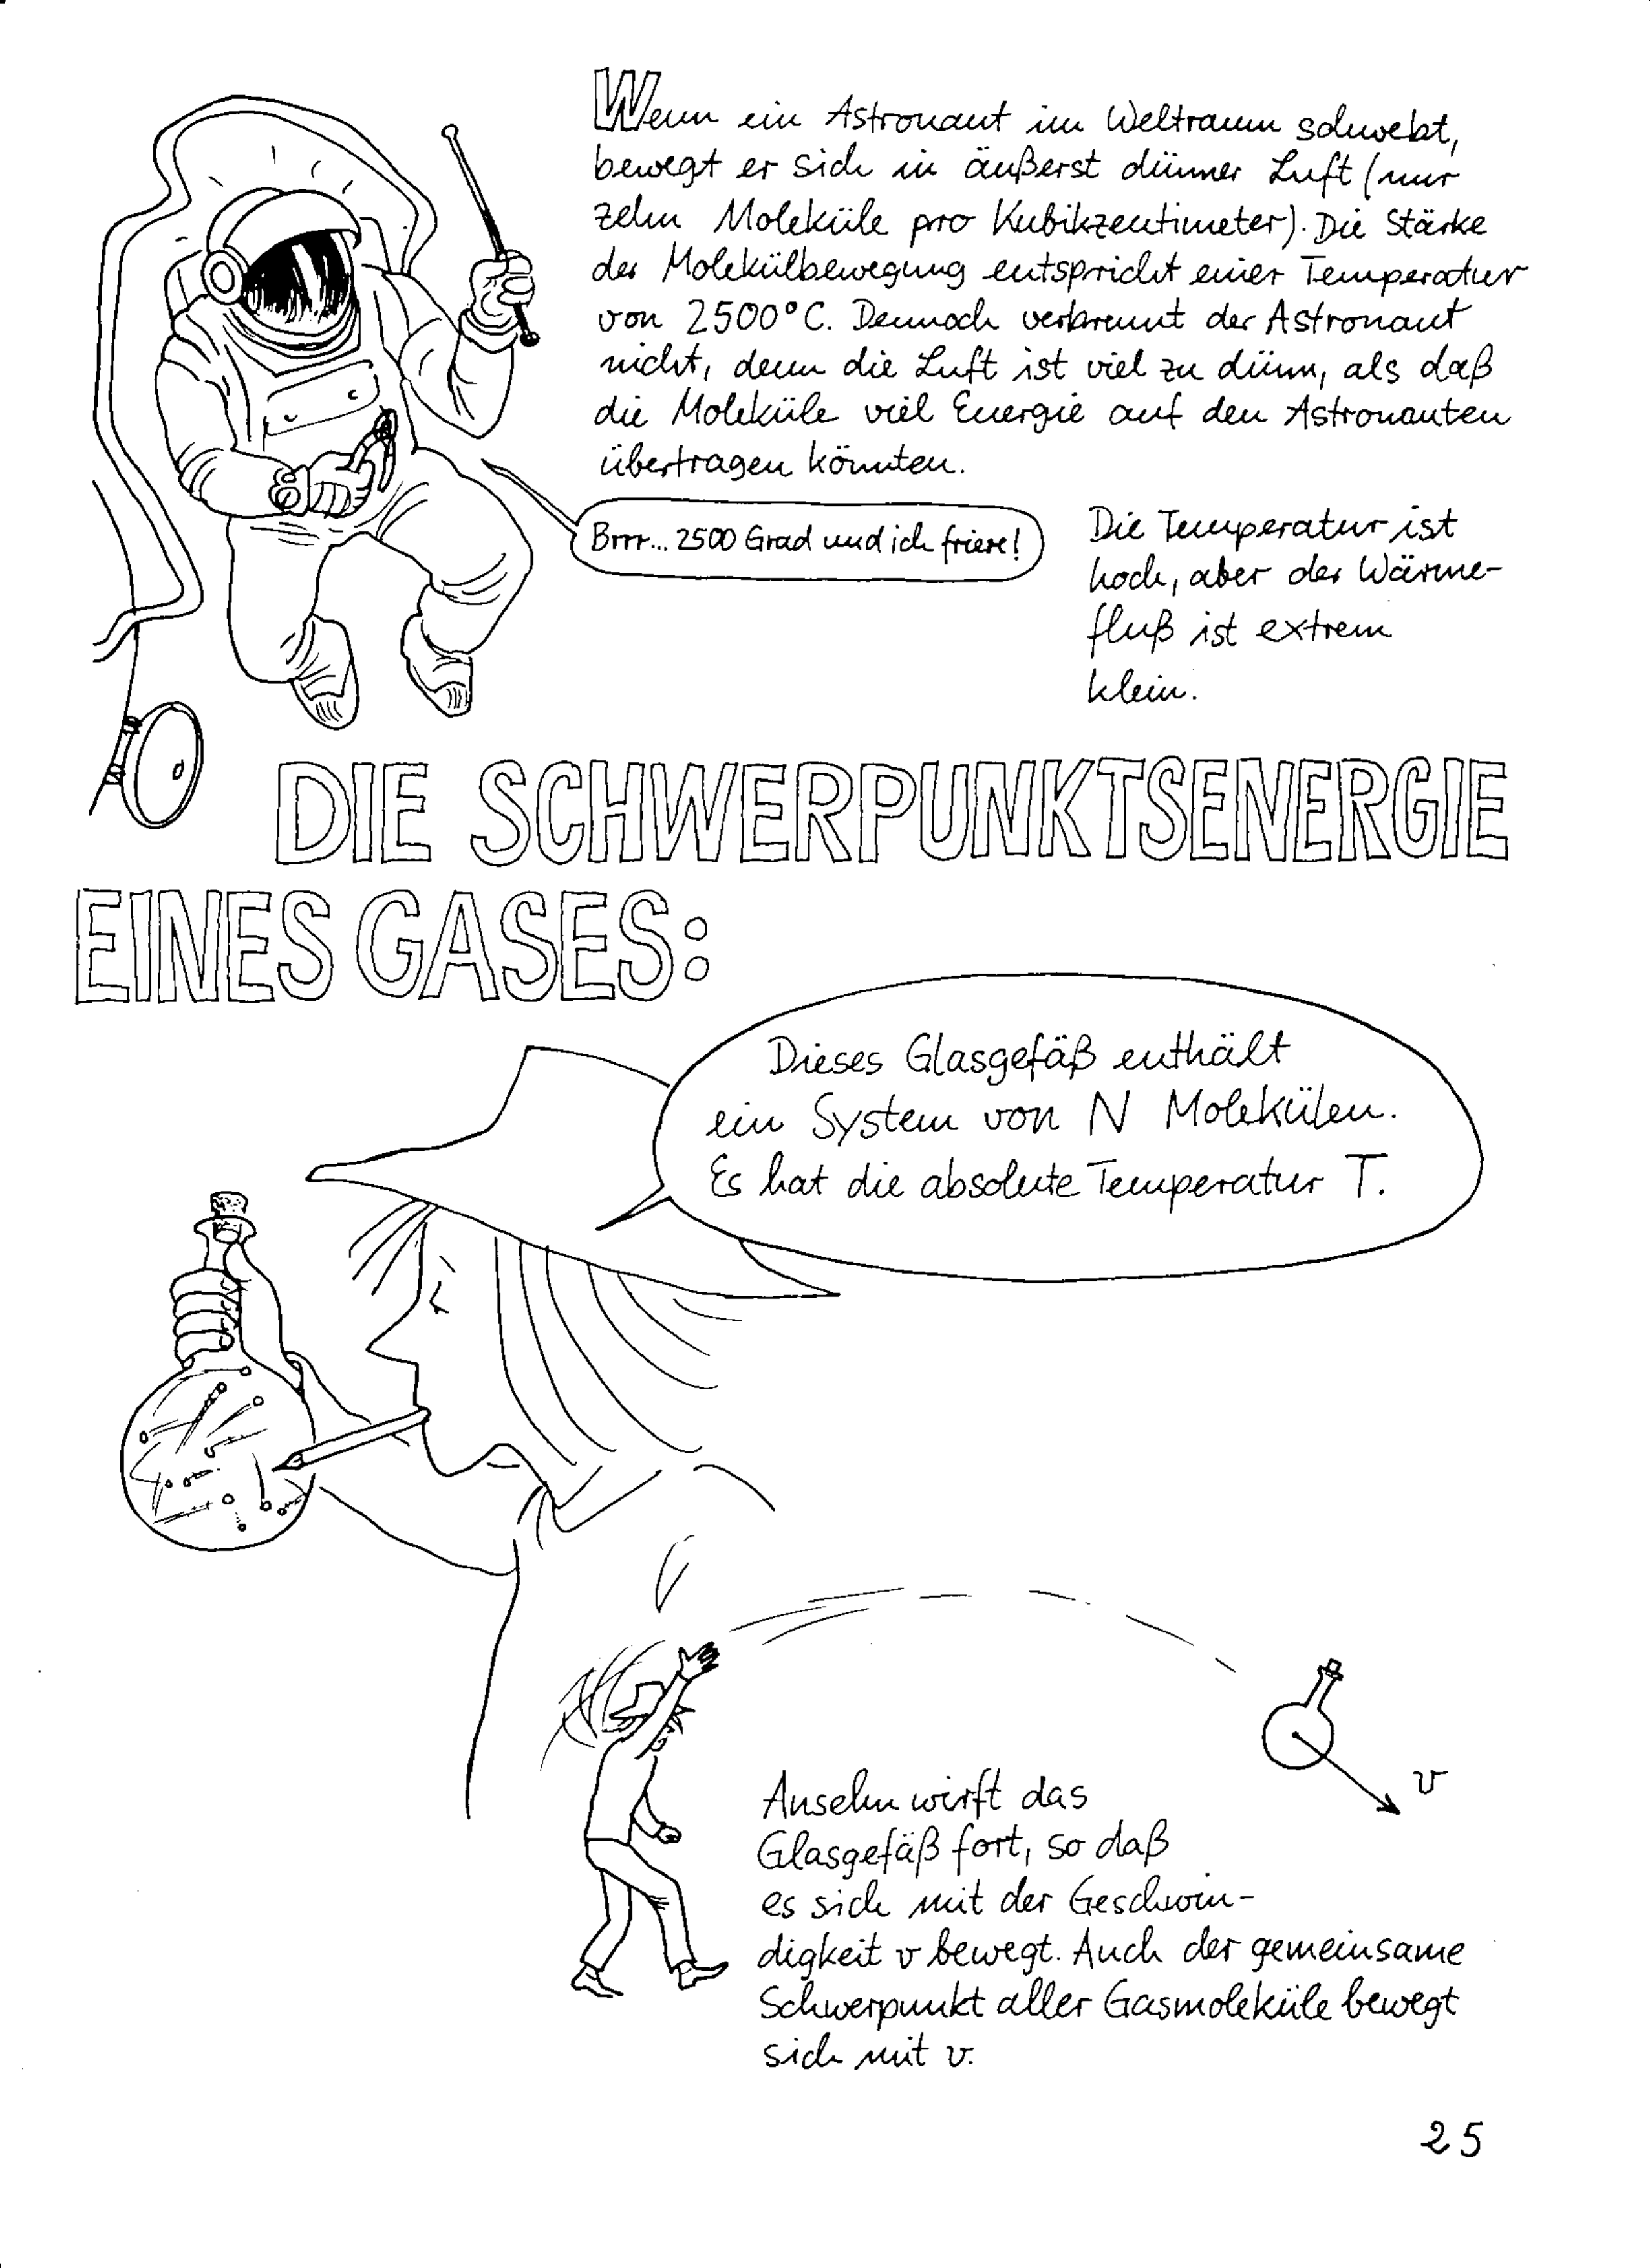 Wenn ein Astronaut im Weltraum schwebt,
bewegt er sich in äußerst dünner Luft (nur
zehn Moleküle pro Kubikzentimeter). Die Stärke
der Molekülbewegung entspricht einer Temperatur
von 2500°C. Dennoch verbrennt der Astronaut
nicht, denn die Luft ist viel zu dünn, als daß
die Moleküle viel Energie auf den Astronauten
übertragen könnten.
Brrr... 2500 Grad und ich friere!
Die Temperatur ist
hoch, aber der Wärme-
fluß ist extrem
klein.
DIE SCHWERPUNKTSENERGIE
EINES GASES:
Dieses Glasgefäß enthält
ein System von N Molekülen.
Es hat die absolute Temperatur T.
v
Anselm wirft das
Glasgefäß fort, so daß
es sich mit der Geschwin-
digkeit v bewegt. Auch der gemeinsame
Schwerpunkt aller Gasmoleküle bewegt
sich mit v.
25